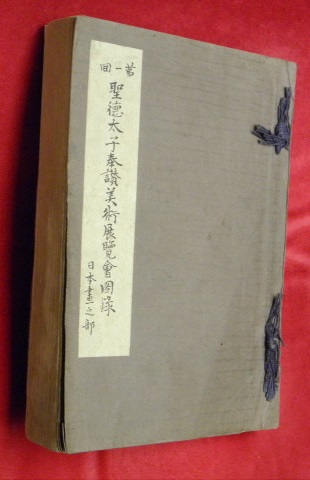 第一回
聖德太子奉讃美術展覽會圖錄
日本畫之部